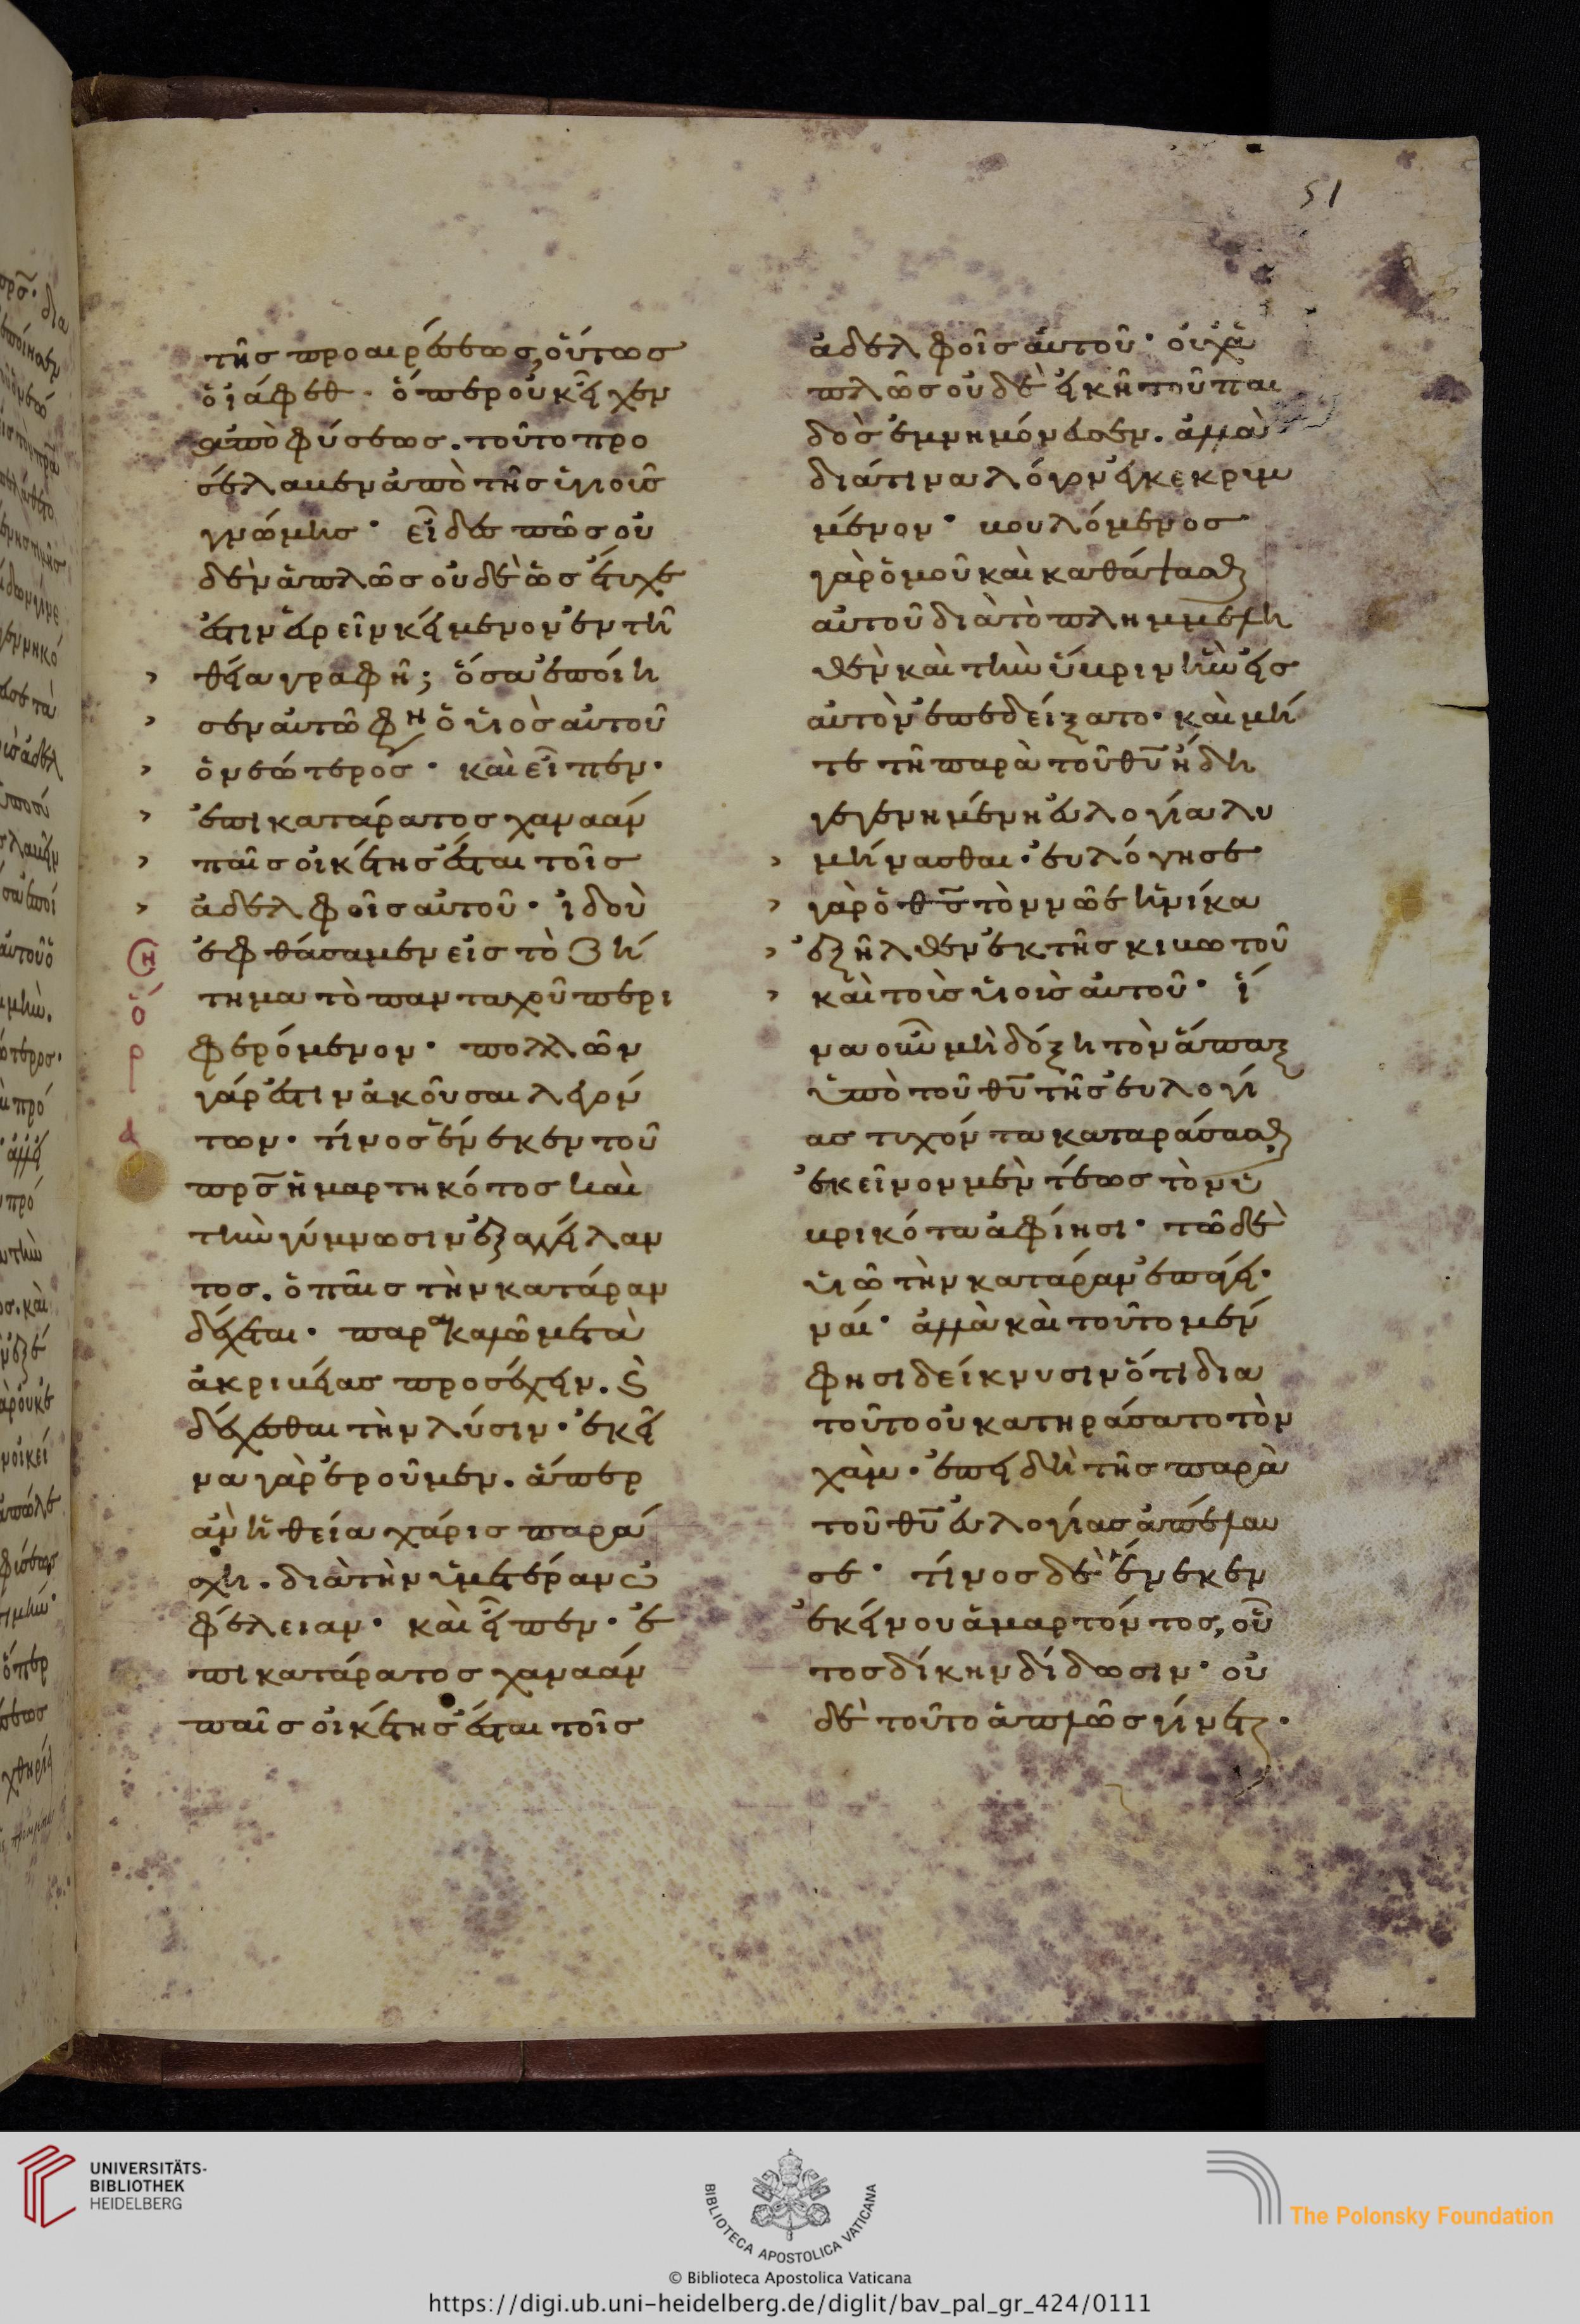 51
τῆς προαιρέσεως, οὕτως
ὁ ἰάφεθ· ὅπερ οὐκ εἶχεν
ἀπὸ φύσεως. τοῦτο προ
σέλαβεν ἀπὸ τῆς
γνώμης· εἶδες πῶς οὐ
δὲν ἁπλῶς οὐδὲ ὡς ἔτυχε
ἔστιν εὑρεῖν κείμενον ἐν τῆ
θεία γραφῆ; ὅσα ἐποίη
σεν αὐτῶ φη ὁ υἱὸς αὐτοῦ
ὁ νεώτερος· καὶ εἶπεν·
ἐπικατάρατος χαναάν
παῖς οἰκέτης ἔσται τοῖς
ἀδελφοῖς αὐτοῦ· ἰδοὺ
ἐφθάσαμεν εἰς τὸ ζή
τημα τὸ πανταχοῦ περι
φερόμενον· πολλῶν
γάρ ἐστιν ἀκοῦσαι λεγόν
των· τίνος ἕνεκεν τοῦ
πρς ἡμαρτηκότος καὶ
τὴν γύμνωσιν ἐξαγγείλαν
τος. ὁ παῖς τὴν κατάραν
δέχεται· παρακαλῶ μετὰ
ἀκριβείας προσέχειν. καὶ
δέχεσθαι τὴν λύσιν· ἐκεῖ
να γὰρ ἐροῦμεν. ἅπερ
ἂν ἡ θεία χάρις παρά
σχη. διὰ τὴν ὑμετέραν ὠ
φέλειαν· καὶ εἶπεν· ἐ
πικατάρατος χαναάν
παῖς οἰκέτης ἔσται τοῖς
ἀδελφοῖς αὐτοῦ· οὐχ ἁ
πλῶς οὐδὲ εἰκῆ τοῦ παι
δὸς ἐμνημόνευσεν. ἀλλὰ
διά τινα λόγον ἐγκεκρυμ
μένον· βουλόμενος
γὰρ ὁμοῦ καὶ καθάψασθαι
αὐτοῦ διὰ τὸ πλημμελη
θὲν καὶ τὴν ὕβριν ἣν εἰς
αὐτὸν ἐπεδείξατο· καὶ μή
τε τῆ παρὰ τοῦ θυ ἤδη
γεγενημένη εὐλογία λυ
μήνασθαι· εὐλόγησε
γὰρ ὁ θς τὸν νῶε ἡνίκα
ἐξῆλθεν ἐκ τῆς κιβωτοῦ
καὶ τοὺς υἱοὺς αὐτοῦ· ἵ
να οὖν μὴ δόξη τὸν ἅπαξ
ὑπὸ τοῦ θυ τῆς εὐλογί
ας τυχόντα καταράσασθαι
ἐκεῖνον μὲν τέως τὸν ὑ
βρικότα ἀφίησι· τῶ δὲ
υἱῶ τὴν κατάραν ἐπάγει·
ναί· ἀλλὰ καὶ τοῦτο μέν
φησι δείκνυσιν ὅτι δια
τοῦτο οὐ κατηράσατο τὸν
χάμ· ἐπειδὴ τῆς παρὰ
τοῦ θυ εὐλογίας ἀπέλαυ
σε· τίνος δὲ ἕνεκεν
ἐκείνου ἁμαρτόντος, οὗ
τος δίκην δίδωσιν· οὐ
δὲ τοῦτο ἁπλῶς γίνεται·
UNIVERSITÄTS-
BIBLIOTHEK
HEIDELBERG
BIBLIOTECA APOSTOLICA VATICANA
The Polonsky Foundation
© Biblioteca Apostolica Vaticana
https://digi.ub.uni-heidelberg.de/diglit/bav_pal_gr_424/0111